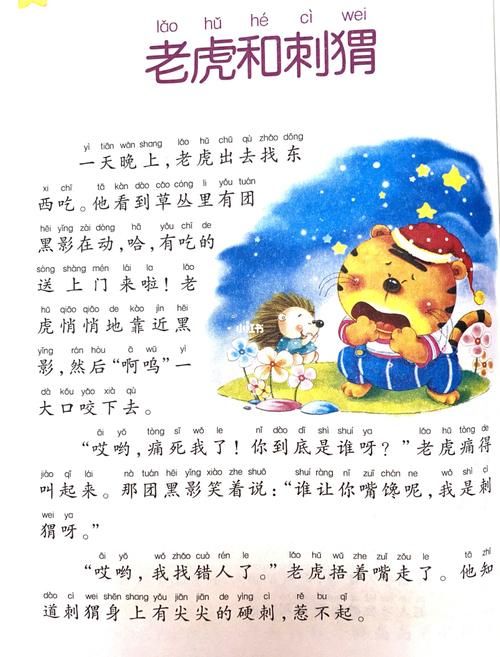 lǎo hǔ hé cì wei
老虎和刺猬
yì tiān wǎn shang lǎo hǔ chū qù zhǎo dōng
一天晚上，老虎出去找东
xi chī tā kàn dào cǎo cóng li yǒu tuán
西吃。他看到草丛里有团
hēi yǐng zài dòng hā yǒu chī de
黑影在动，哈，有吃的
sòng shàng mén lái la lǎo
送上门来啦！老
hǔ qiāo qiāo de kào jìn hēi
虎悄悄地靠近黑
yǐng rán hòu ā wū yí
影，然后“啊呜”一
dà kǒu yǎo xià qù
大口咬下去。
小红书
āi yō tòng sǐ wǒ le nǐ dào dǐ shì shuí ya lǎo hǔ tòng de
“哎哟，痛死我了！你到底是谁呀？”老虎痛得
jiào qǐ lái nà tuán hēi yǐng xiào zhe shuō shuí ràng nǐ zuǐ chán ne wǒ shì cì
叫起来。那团黑影笑着说：“谁让你嘴馋呢，我是刺
wei ya
猬呀。”
āi yō wǒ zhǎo cuò rén le lǎo hǔ wǔ zhe zuǐ zǒu le tā zhī
“哎哟，我找错人了。”老虎捂着嘴走了。他知
dào cì wei shēn shang yǒu jiān jiān de yìng cì rě bu qǐ
道刺猬身上有尖尖的硬刺，惹不起。